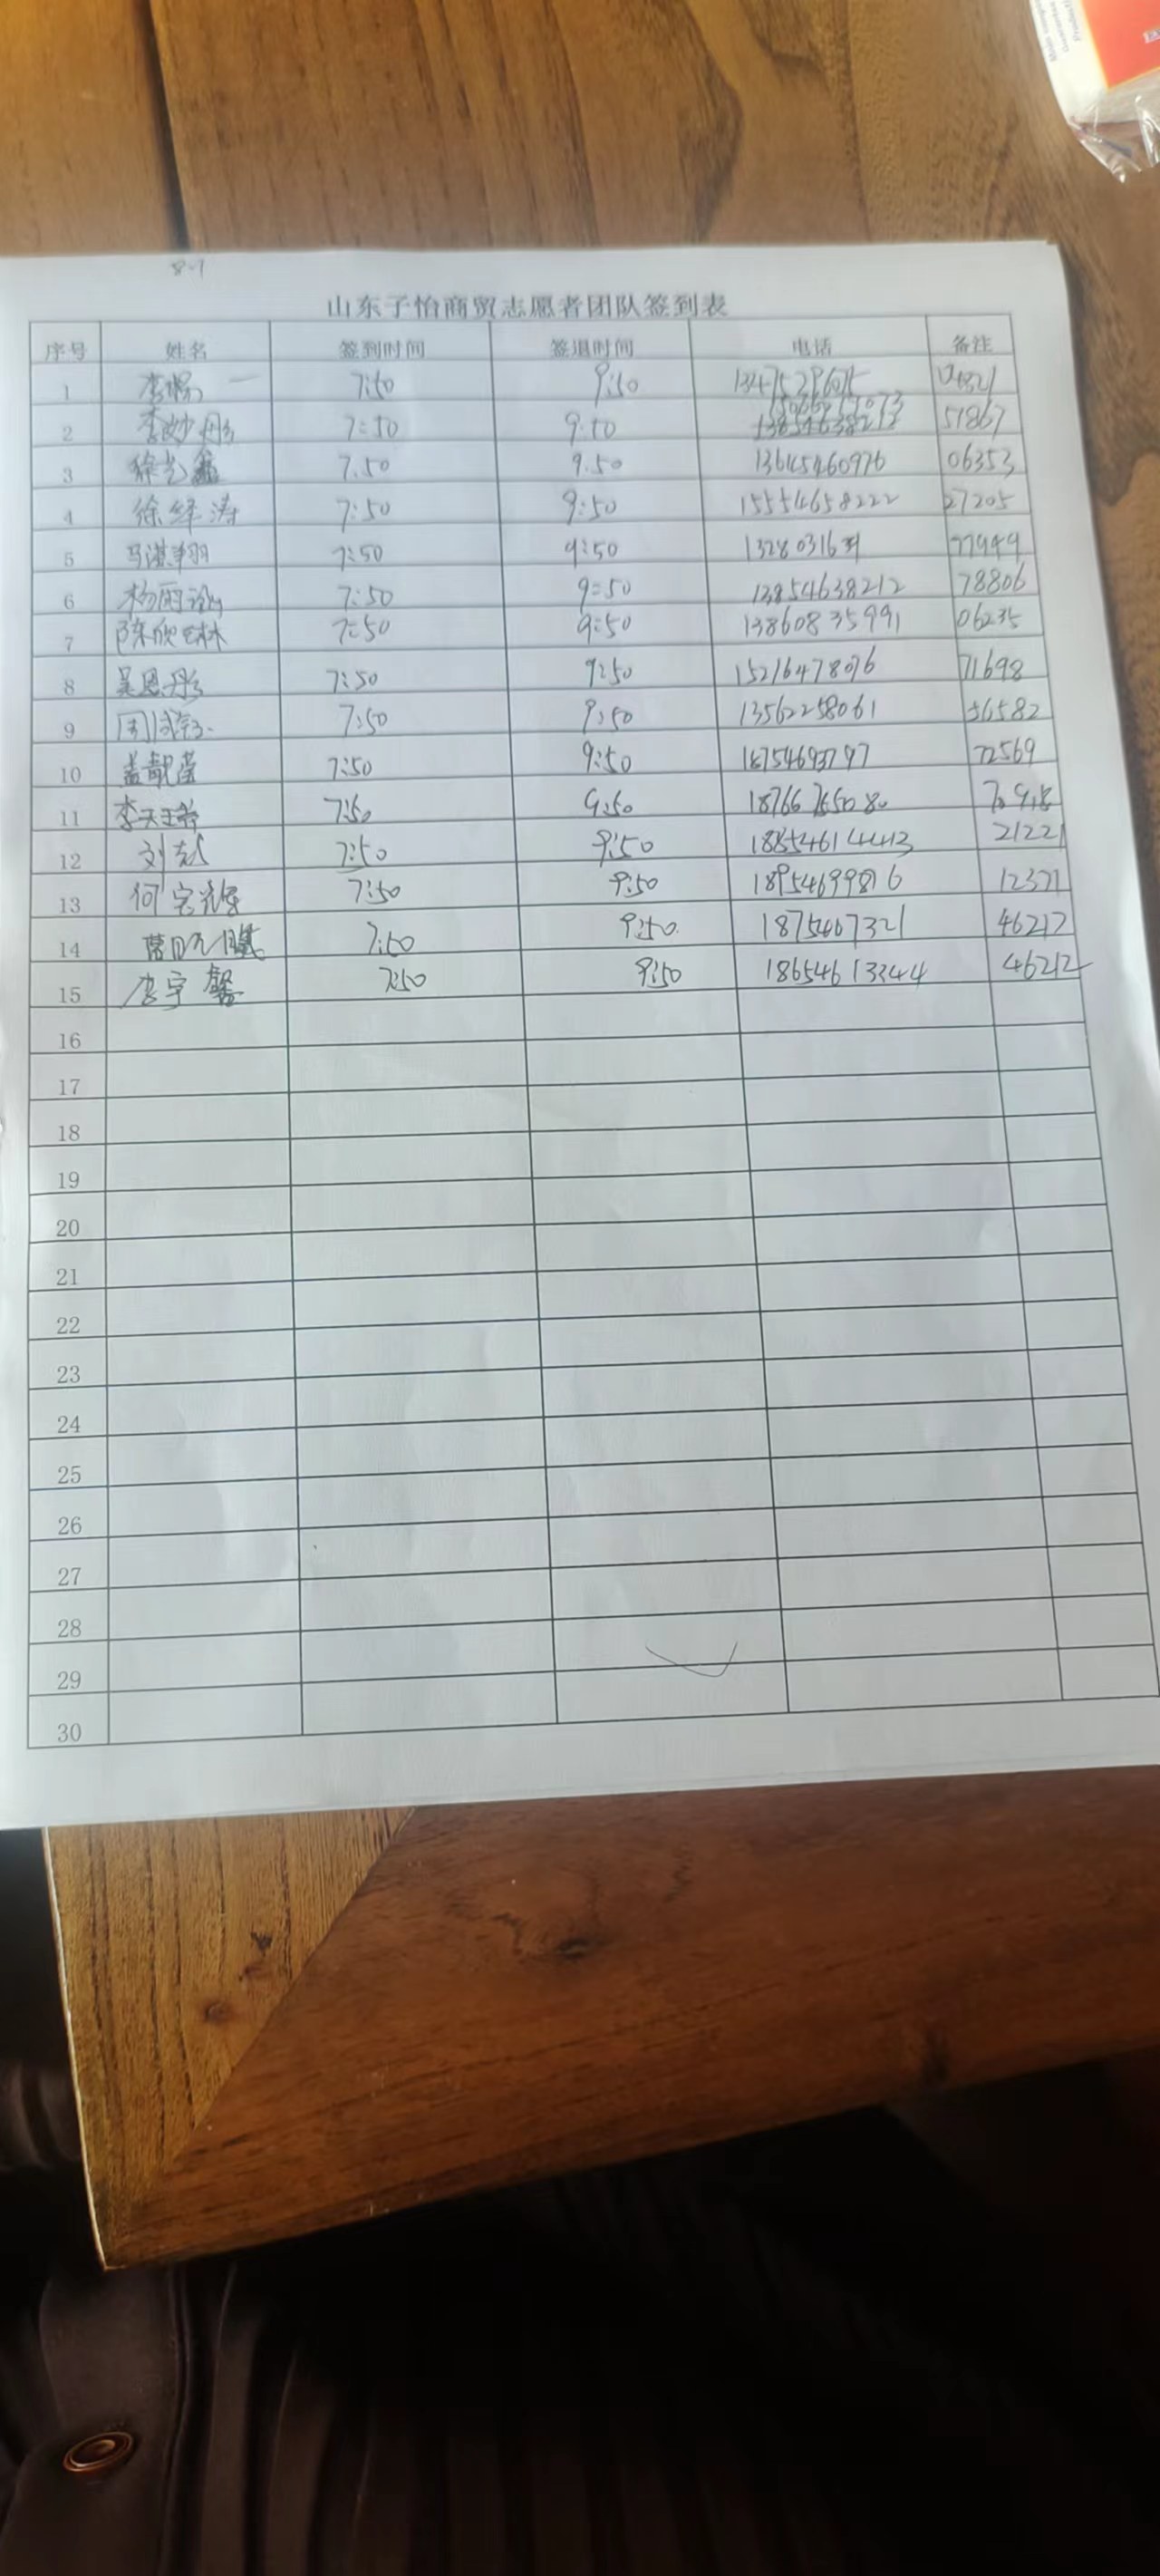 8-1
山东子怡商贸志愿者团队签到表
序号 姓名 签到时间 签退时间 电话 备注
1 李 一 7:50 9:50
2 李妙彤 7:50 9:50 51867
3 徐艺鑫 7.50 9.50 13645460976 06353
4 徐绎涛 7:50 9:50 15554658222 27205
5 马淇翔 7:50 9:50 77949
6 杨雨 7:50 9:50 13854638212 78806
7 陈欣琳 7:50 9:50 13860835991 06235
8 吴恩彤 7:50 9:50 15216478076 71698
9 周 7:50 9:50 13562258061 36582
10 盖靓莹 7:50 9:50 18754693797 72569
11 李天 7:50 9:50 18766765080
12 刘 7:50 9:50 18854614443 21221
13 何 7:50 9:50 18954699876 12371
14 7:50 9:50. 1875467321 46212
15 李宇馨 7:50 9:50 18654613344 46212
16
17
18
19
20
21
22
23
24
25
26
27
28
29
30